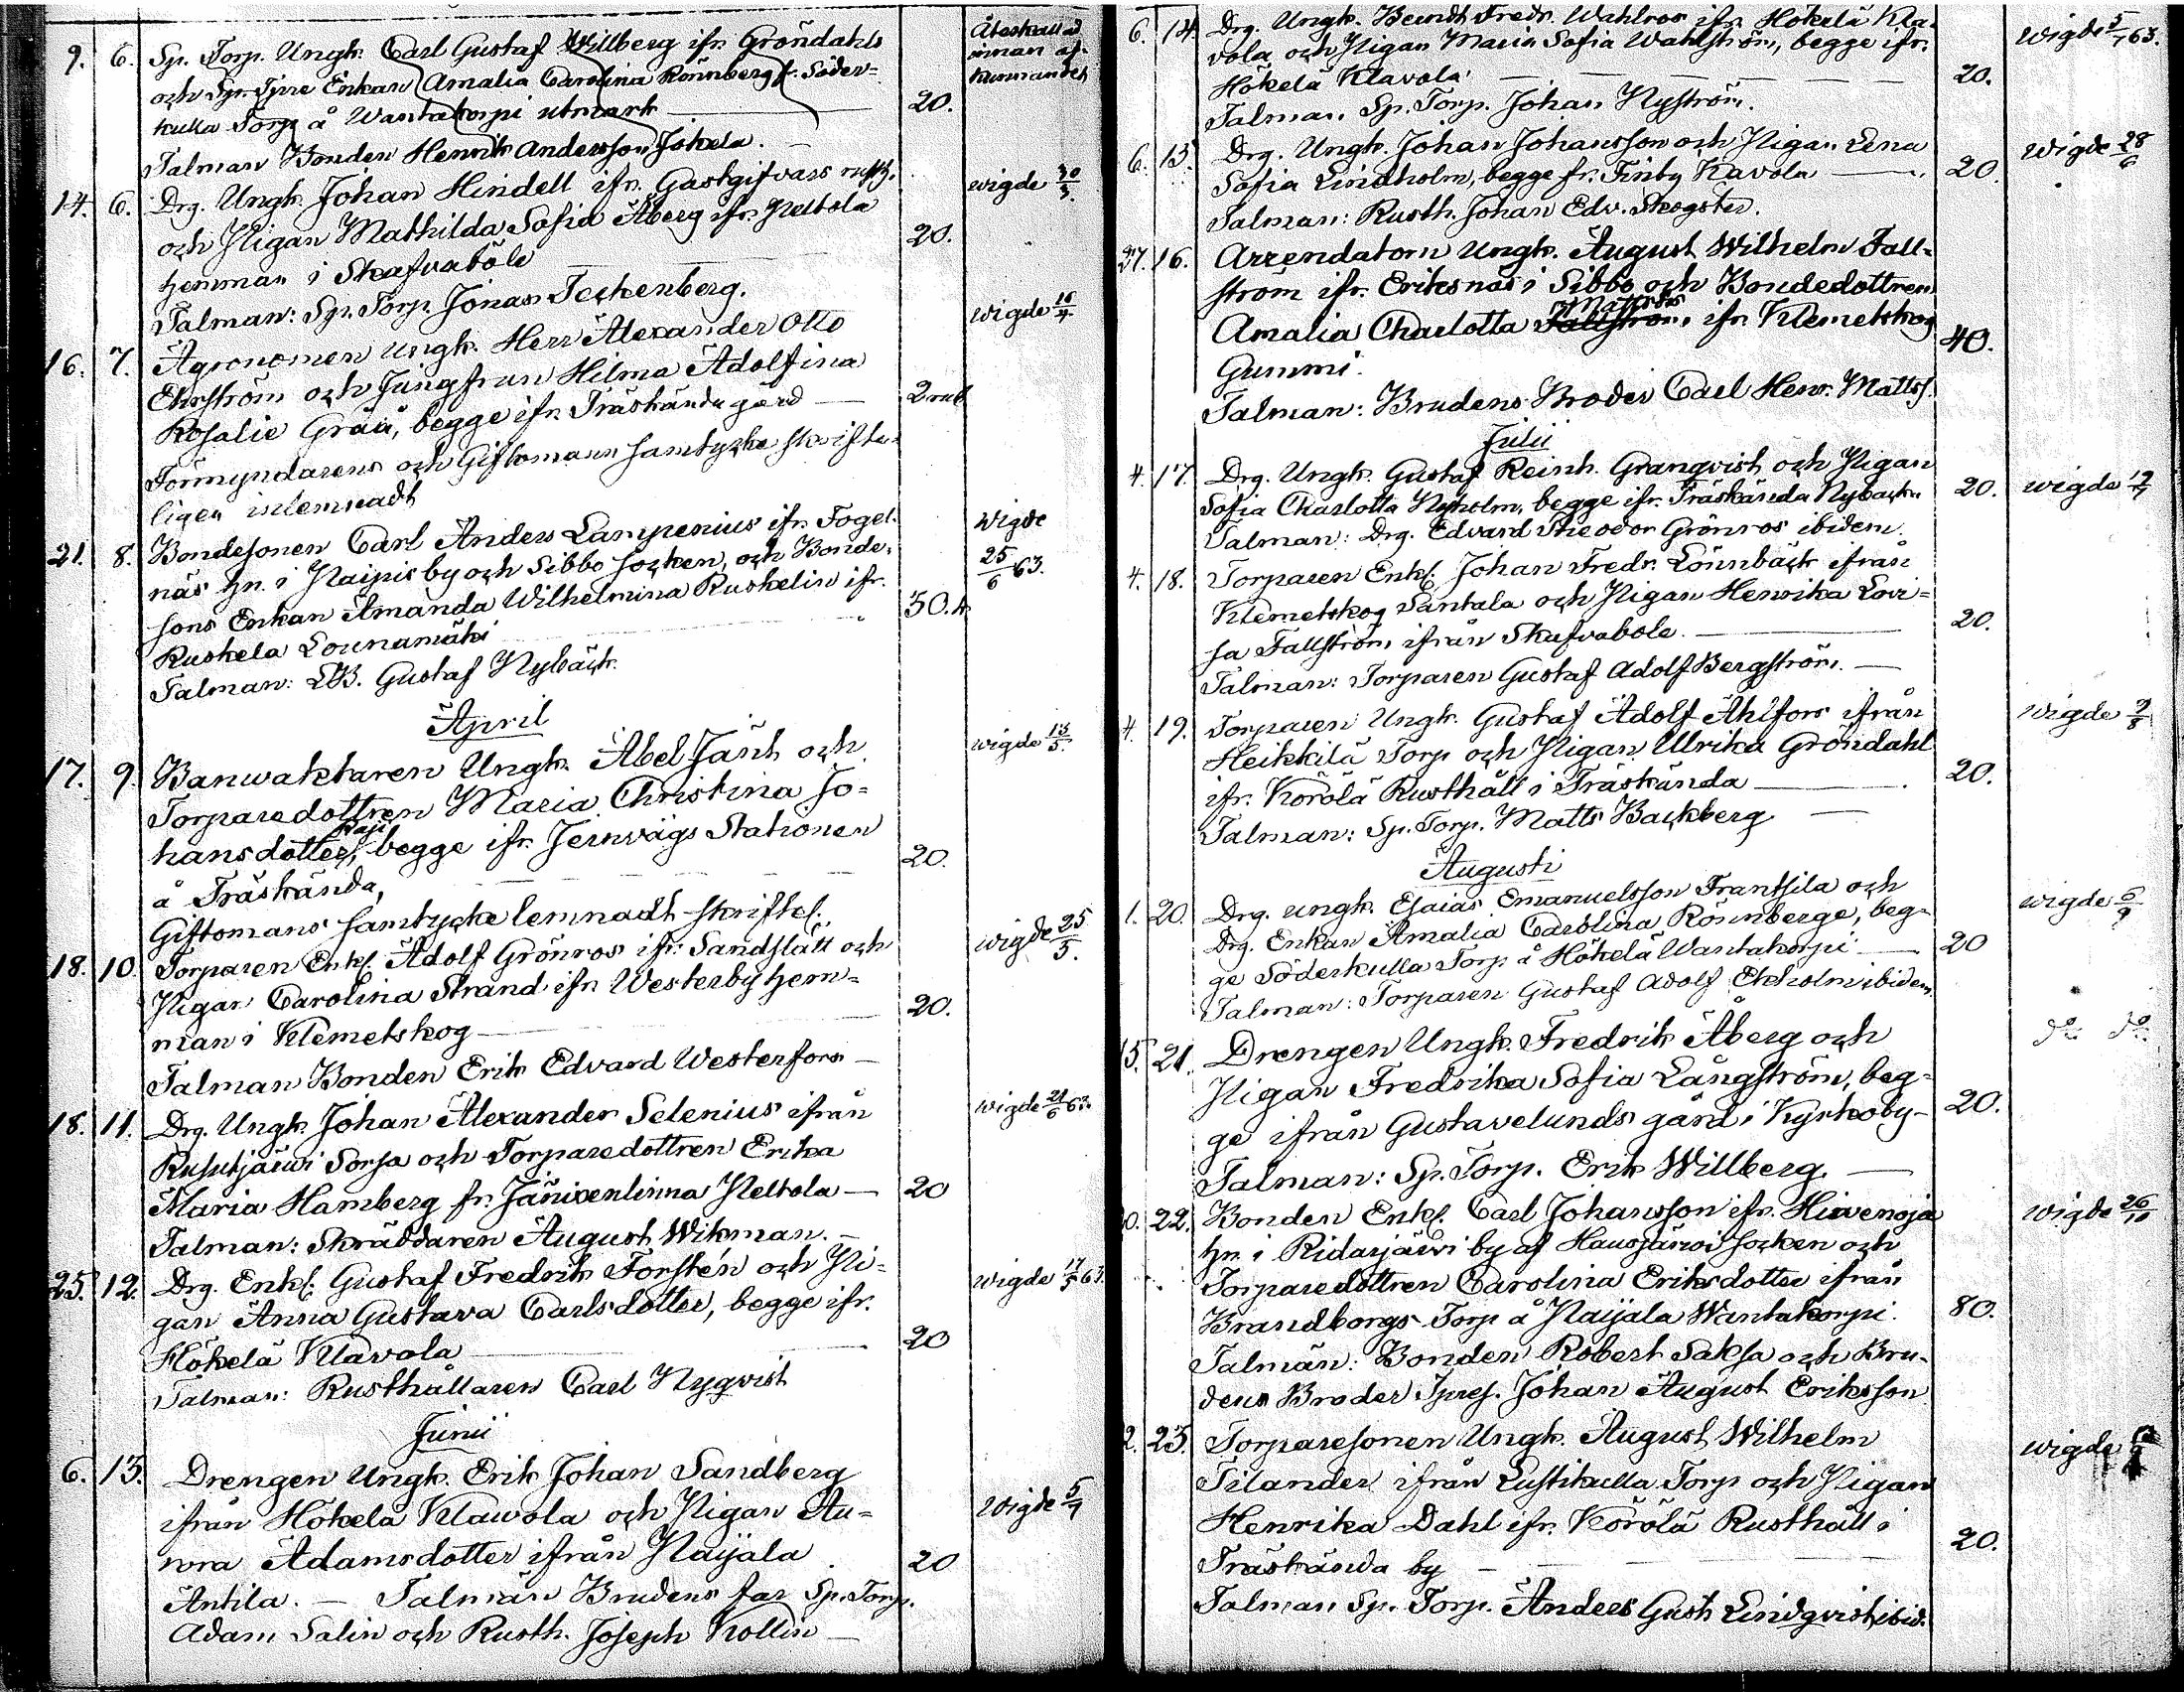 9. 6. Sp. Torp. Ungk. Carl Gustaf Willberg ifr. Gröndahls
och Sp. Tjvre Enkan Amalia Carolina Rönnberg fr. Söder=
kulla Torp å Wantakorpi utmark — 20.
Återkallad innan af-kunnandet
Talman Bonden Henrik Andersson Jokela. —
14. 6. Drg. Ungk. Johan Hindell ifr. Gästgifvars rusth. wigde 30/3.
och Pigan Mathilda Sofia Åberg ifr. Peltola 20.
hemman i Skafvaböle
Talman: Sp. Torp. Jonas Teckenberg.
16. 7. Agronomen Ungk. Herr Alexander Otto wigde 16/4.
Ehrström och Jungfrun Hilma Adolfina
Rosalie Gråå, begge ifr. Träskända gård — 2 rub
Förmyndarens och Giftomans samtycke skrifte-
ligen inlemnadt
21. 8. Bondesonen Carl Anders Lampenius ifr. Fogel- wigde
näs hn. i Paipis by och Sibbo socken, och Bonde- 25/6 63.
sons Enkan Amanda Wilhelmina Ruskelin ifr.
Ruskela Lounamäki 50.
Talman: LB. Gustaf Nybäck.
April
17. 9. Banwaktaren Ungk. Abel Jänt och wigde 13/5.
Torparedottren Maria Christina Jo=
Raji
hansdotter, begge ifr. Jernvägs Stationen 20.
å Träskända,
Giftomans samtycke lemnadt skriftel.
18. 10. Torparen Enkl. Adolf Grönros ifr. Sandslätt och wigde 25/5.
Pigan Carolina Strand ifr. Westerby hem= 20.
man i Klemetskog —
Talman Bonden Erik Edvard Westerfors —
18. 11. Drg. Ungk. Johan Alexander Selenius ifrån wigde 21/6 63.
Rusutjärwi Sorsa och Torparedottren Erika
Maria Hamberg fr. Jänixenlinna Peltola — 20
Talman: Skräddaren August Wikman. —
25. 12. Drg. Enkl. Gustaf Fredrik Forstén och Pi= wigde 17/5 63.
gan Anna Gustava Carlsdotter, begge ifr.
Hökelä Klavola — 20
Talman: Rusthållaren Carl Nyqvist
Junii
6. 13. Drengen Ungk. Erik Johan Sandberg
ifrån Hökelä Klawola och Pigan Au= wigde 5/7
rora Adamsdotter ifrån Paijala 20
Antila. — Talmän Brudens far Sp. Torp.
Adam Salin och Rusth. Joseph Kollin —
6. 14. Drg. Ungk. Berndt Fredr. Wahlros ifr. Hökelä Kla- wigde 5/7 63.
vola och Pigan Maria Sofia Wahlström, begge ifr.
Hökelä Klavola — 20.
Talman, Sp. Torp. Johan Nyström.
6. 15. Drg. Ungk. Johan Johansson och Pigan Lena wigde 28/6
Sofia Lindholm, begge fr. Finby Kavola — 20.
Talman: Rusth. Johan Edv. Skogster.
27. 16. Arrendatorn Ungk. August Wilhelm Fall=
ström ifr. Eriksnäs i Sibbo och Bondedottren
Mattsdr
Amalia Charlotta Fallström ifr. Klemetskog 40.
Gummi.
Talman: Brudens Broder Carl Henr. Matts.
Julii
4. 17. Drg. Ungk. Gustaf Reinh. Granqvist och Pigan
Sofia Charlotta Nyholm, begge ifr. Träskända Nybacka 20. wigde 19/7
Talman: Drg. Edvard Theodor Grönros ibidem.
4. 18. Torparen Enkl. Johan Fredr. Lönnbäck ifrån
Klemetskog Santala och Pigan Henrika Lovi=
sa Fallström ifrån Skafvaböle. — 20.
Talman: Torparen Gustaf Adolf Bergström. —
4. 19. Torparen Ungk. Gustaf Adolf Ahlfors ifrån wigde 9/8
Heikkilä Torp och Pigan Ulrika Gröndahl
ifr. Körölä Rusthåll i Träskända — 20.
Talman: Sp. Torp. Matts Backberg —
Augusti
1. 20. Drg. Ungk. Esaias Emanuelsson Frantsila och wigde 6/9
Drg. Enkan Amalia Carolina Rönnberge, beg=
ge Söderkulla Torp å Hökelä Wantakorpi — 20
Talman: Torparen Gustaf Adolf Ekholm ibidem
15. 21. Drengen Ungk. Fredrik Åberg och do do
Pigan Fredrika Sofia Långström, beg=
ge ifrån Gustavelunds gård i Kyrkoby — 20.
Talman: Sp. Torp. Erik Willberg. —
22. Bonden Enkl. Carl Johansson ifr. Hirvenoja wigde 26/10
hn. i Ridasjärwi by af Hausjärwi socken och
Torparedottren Carolina Eriksdotter ifrån
Brandborgs Torp å Paijala Wantakorpi. 80.
Talmän: Bonden Robert Saksa och Bru-
dens Broder Johan August Eriksson
2. 23. Torparesonen Ungk. August Wilhelm wigde
Tilander ifrån Lustikulla Torp och Pigan
Henrika Dahl ifr. Körölä Rusthåll i
Träskända by — 20.
Talman Sp. Torp. Anders Gust. Lindqvist, ibid.